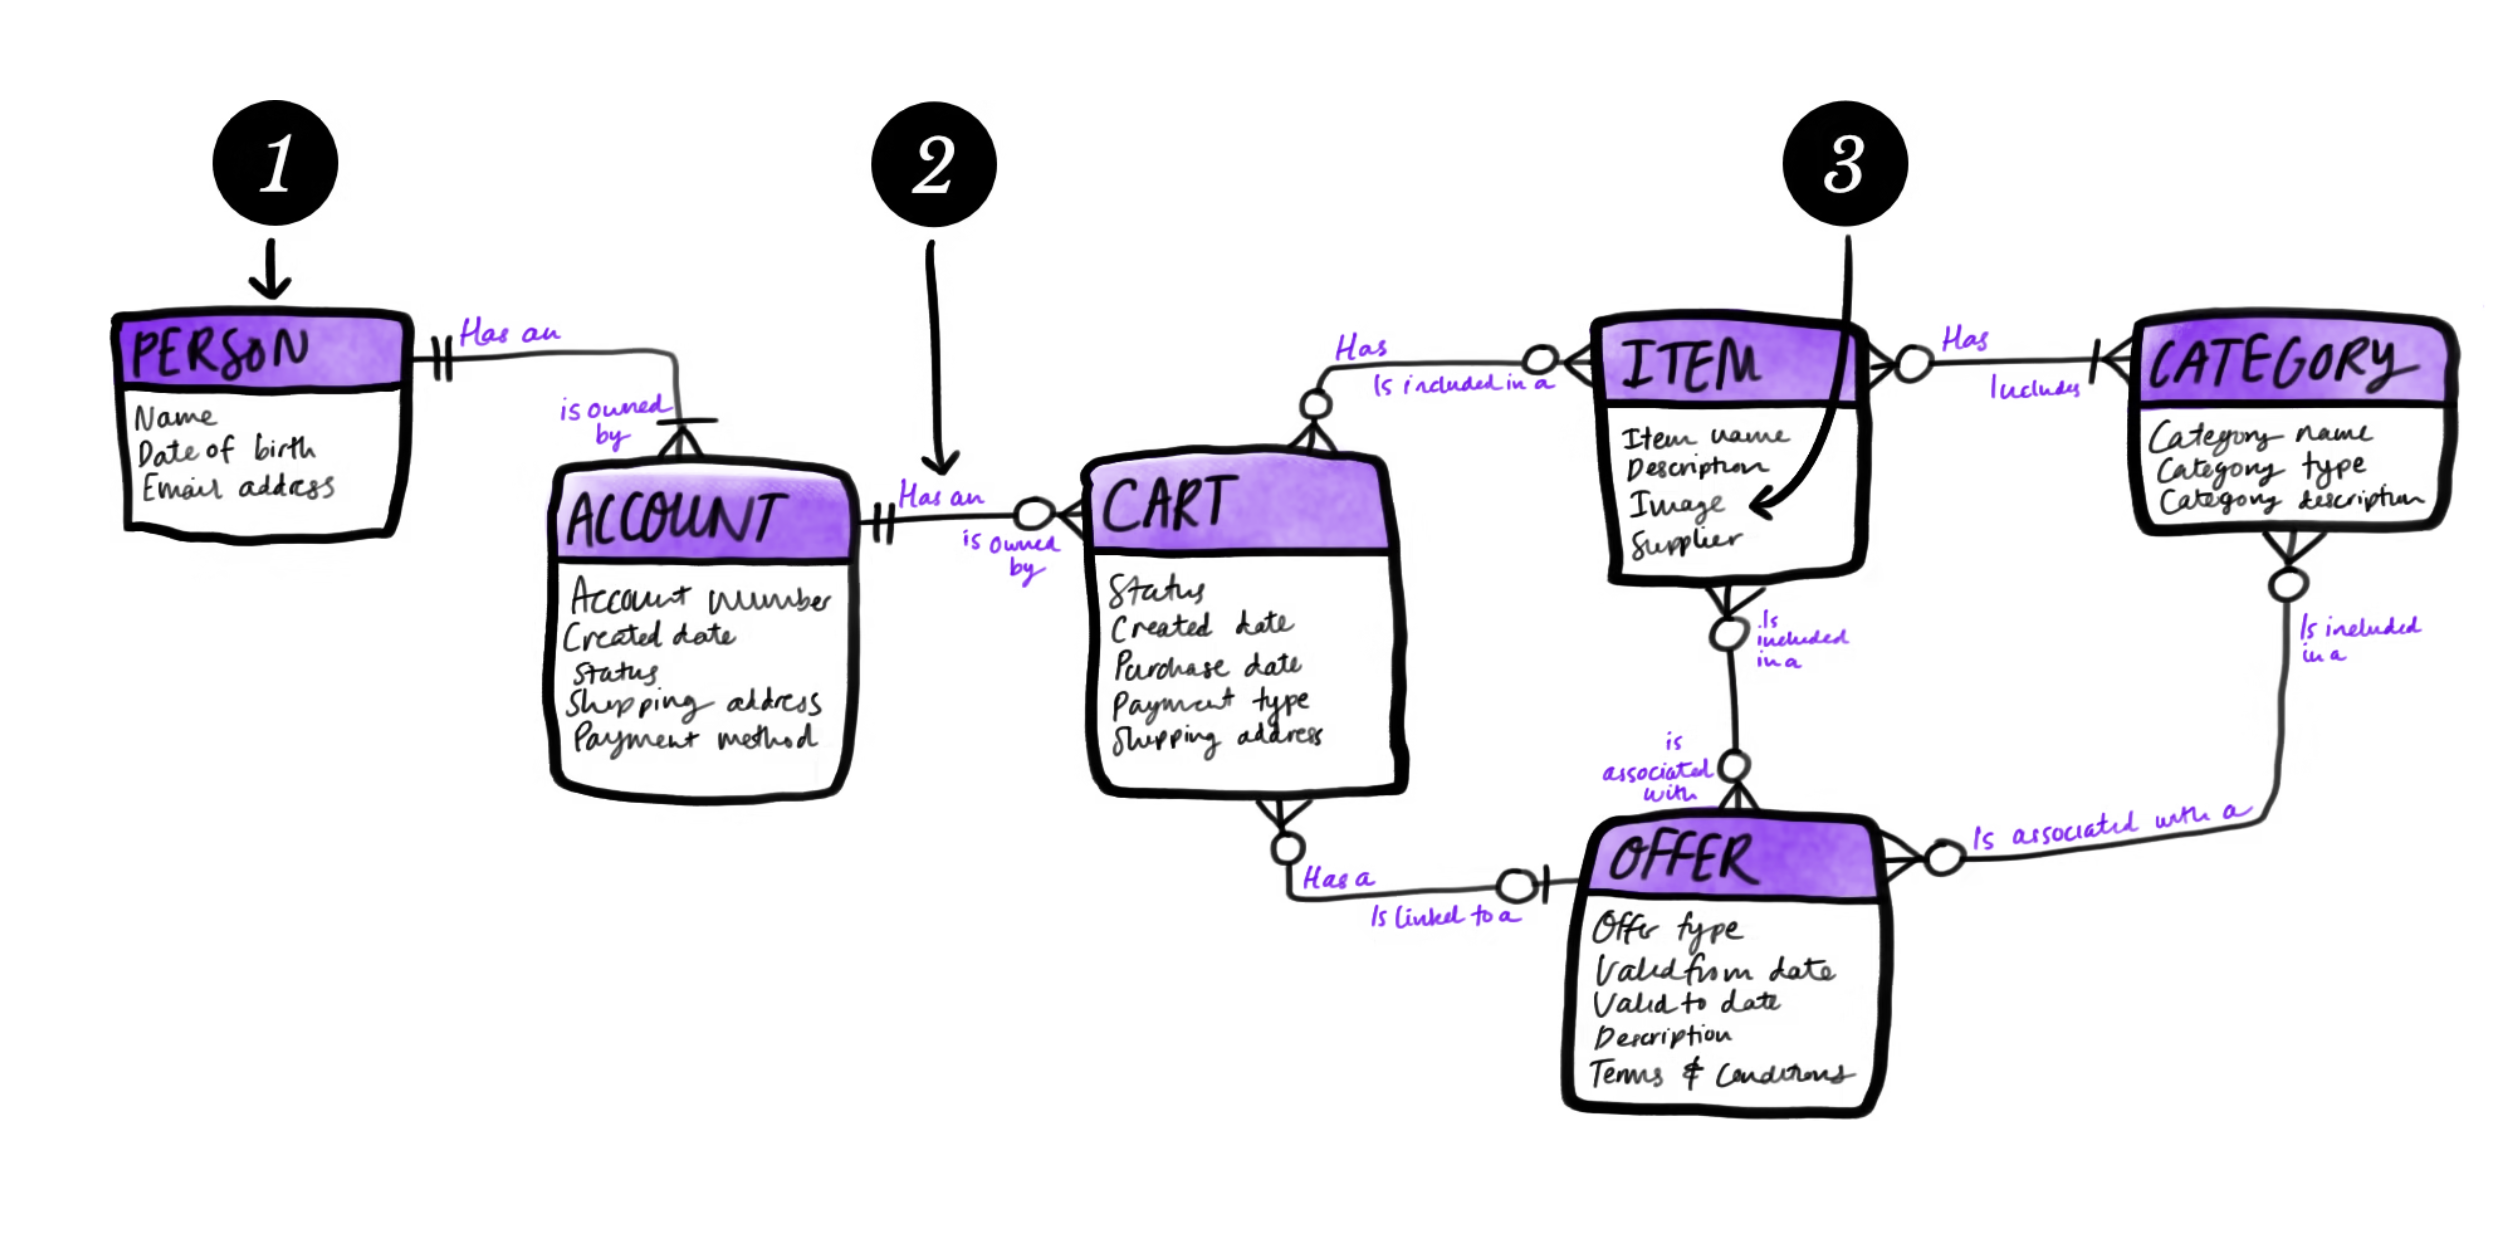 1
2
3
PERSON
Name
Date of birth
Email address
Has an
is owned
by
ACCOUNT
Account number
Created date
Status
Shipping address
Payment method
Has an
is owned
by
CART
Status
Created date
Purchase date
Payment type
Shipping address
Has
Is included in a
ITEM
Item name
Description
Image
Supplier
Has
Includes
CATEGORY
Category name
Category type
Category description
Is
included
in a
is
associated
with
Has a
Is linked to a
OFFER
Offer type
Valid from date
Valid to date
Description
Terms & Conditions
Is included
in a
Is associated with a